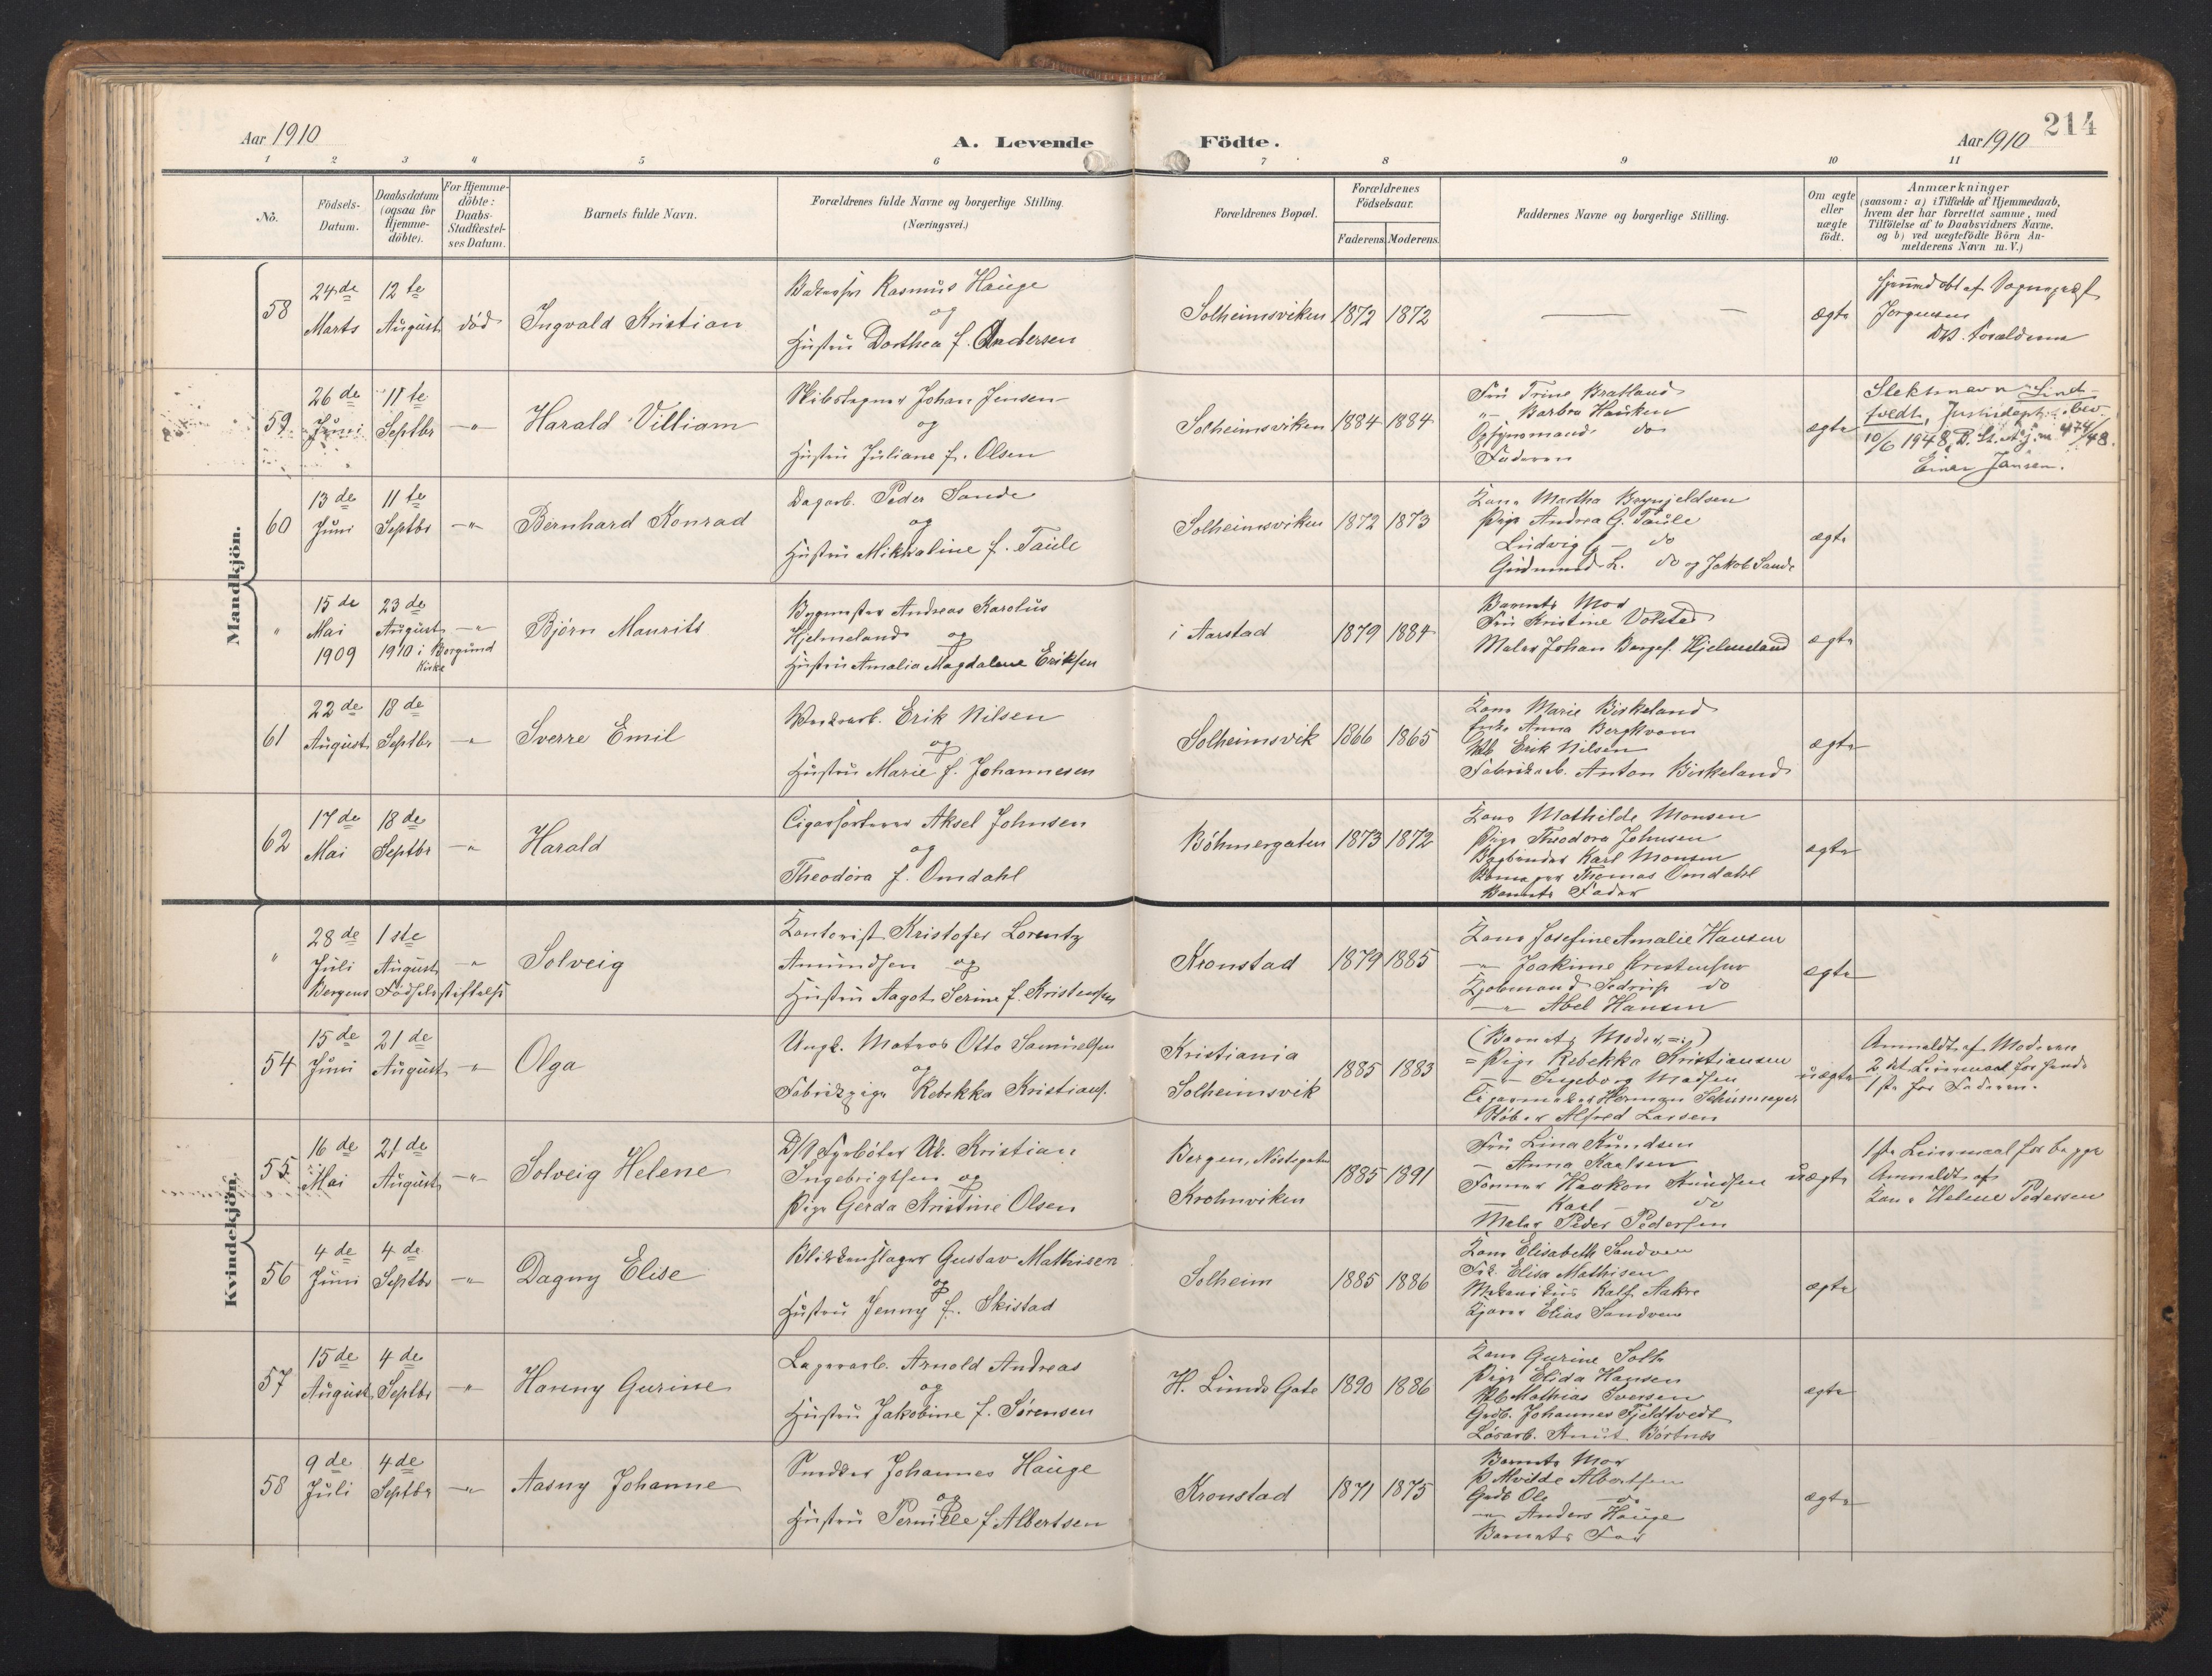 214
Aar 1910
A. Levende Födte.
Aar 1910
1 2 3 4 5 6 7 8 9 10 11
No.
Födsels-Datum.
Daabsdatum (ogsaa for Hjemme-döbte).
For Hjemme-döbte: Daabs-Stadfæstel-ses Datum.
Barnets fulde Navn.
Forældrenes fulde Navne og borgerlige Stilling.
(Næringsvei.)
Forældrenes Bopæl.
Forældrenes Födselsaar.
Faderens. Moderens.
Faddernes Navne og borgerlige Stilling.
Om ægte eller uægte födt.
Anmærkninger
(saasom: a) i Tilfælde af Hjemmedaab,
hvem der har forrettet samme, med
Tilföielse af to Daabsvidners Navne.
og b) ved uægtefödte Börn An-
melderens Navn m. V.)
Mandkjön.
58
24de Marts
12te August
död
Ingvald Kristian
Rasmus Hauge
og
Hustru Dorthea f. Andersen
Solheimsviken
1872 1872
ægte
Hjemmedöbt af Sogneprest
Jørgensen
Forældrene
59
26de Juni
11te Septbr
Harald Villiam
Johan Jensen
og
Hustru Juliane f. Olsen
Solheimsviken
1884 1884
Fru Trine Bratland
Barbra Hauken
Opsynsmand do
Faderen
ægte
Slektsnavn Lind-
tvedt, Justisdept. bev.
10/6 1948, 474/48.
Einar Jansen.
60
13de Juni
11te Septbr
Bernhard Konrad
Dagarb. Peder Sande
og
Hustru Mikkaline f. Taule
Solheimsviken
1872 1873
Kone Martha Brynjeldsen
Pige Andrea G. Taule
Ludvig G. do
Gudmund L. do og Jakob Sande
ægte
15de Mai 1909
23de August 1910 i Borgund Kirke
Bjørn Maurits
Bygmester Andreas Karolus
Hjelmeland og
Hustru Amalia Magdalene Eriksen
i Aarstad
1879 1884
Barnets Mor
Fru Kristine Volsted
Maler Johan Hjelmeland
ægte
61
22de August
18de Septbr
Sverre Emil
Erik Nilsen
og
Hustru Marie f. Johannesen
Solheimsvik
1866 1865
Kone Marie Birkeland
Enke Anna Bergkvam
Erik Nilsen
Fabrikarb. Anton Birkeland
ægte
62
17de Mai
18de Septbr
Harald
Cigarsorterer Aksel Johnsen
og
Theodora f. Omdahl
Böhmergaten
1873 1872
Kone Mathilde Monsen
Pige Theodora Johnsen
Bogbinder Karl Monsen
Thomas Omdahl
Barnets Fader
ægte
Kvindekjön.
28de Juli
1ste August
Bergens Födselsstiftelse
Solveig
Kontorist Kristofer Lorentz
Amundsen og
Hustru Aagot Serine f. Kristensen
Kronstad
1879 1885
Kone Josefine Amalie Hansen
Joakime Kristensen
Kjøbmand do
Abel Hansen
ægte
54
15de Juni
21de August
Olga
Ungk. Matros Otto Samuelsen
og
Fabrikpige Rebekka Kristians.
Kristiania
Solheimsvik
1885 1883
(Barnets Moder)
Pige Rebekka Kristiansen
Ingeborg Madsen
Cigarmaker Herman Schumager
Alfred Larsen
uægte
Anmeldt af Moderen
2det Leiermaal for hende
1ste for Faderen.
55
16de Mai
21de August
Solveig Helene
D/S Fyrböter Uk. Kristian
Ingebrigtsen og
Pige Gerda Kristine Olsen
Bergen, Nöstegaten
Krohnviken
1885 1891
Fru Lina Knudsen
Anna Karlsen
Haakon Knudsen
Karl do
Maler Peder Pedersen
uægte
1ste Leiermaal for begge
Anmeldt af
Kone Helene Pedersen
56
4de Juni
4de Septbr
Dagny Elise
Blikkenslager Gustav Mathisen
og
Hustru Jenny f. Skistad
Solheim
1885 1886
Kone Elisabeth Sandven
Frk. Elisa Mathisen
Mekanikus Ralf Aakre
Elias Sandven
ægte
57
15de August
4de Septbr
Hanny Gurine
Lagerarb. Arnold Andreas
og
Hustru Jakobine f. Sørensen
H. Lunds Gate
1890 1886
Kone Gurine
Pige Elida Hansen
Mathias Iversen
Gdb. Johannes Fjeldtvedt
Løsarb. Knut Börtnes
ægte
58
9de Juli
4de Septbr
Aasny Johanne
Snekker Johannes Hauge
og
Hustru Pernille f. Albertsen
Kronstad
1871 1875
Barnets Mor
P. Alvilde Albertsen
Gdb Ole do
Anders Hauge
Barnets Far
ægte